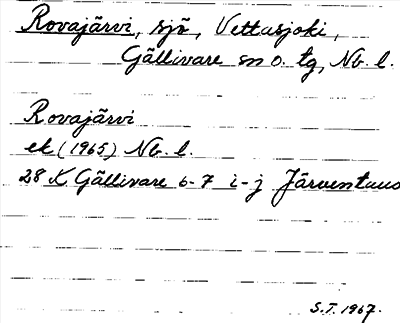 Rovajärvi, sjö, Vettasjoki,
Gällivare sn o. tg, Nb. l.
Rovajärvi
ek (1965) Nb. l.
28 K Gällivare 6-7 i-j Järventaus
S.T. 1967.